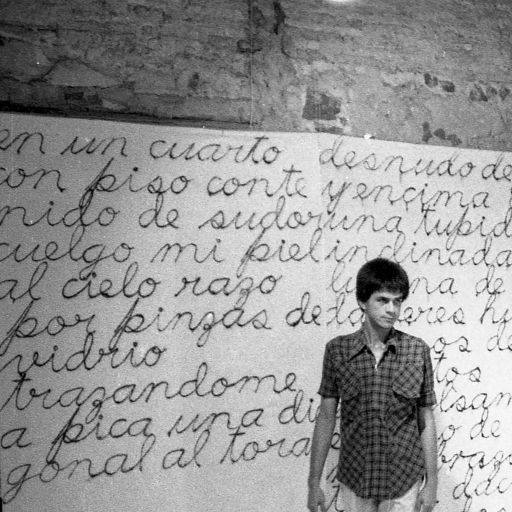 en un cuarto desnudo de
con piso conte y encima
nido de sudor una tupid
cuelgo mi piel inclinada
al cielo razo na de
por pinzas de
vidrio os de
trazandome tos
a pica una di lsam
gonal al tora de